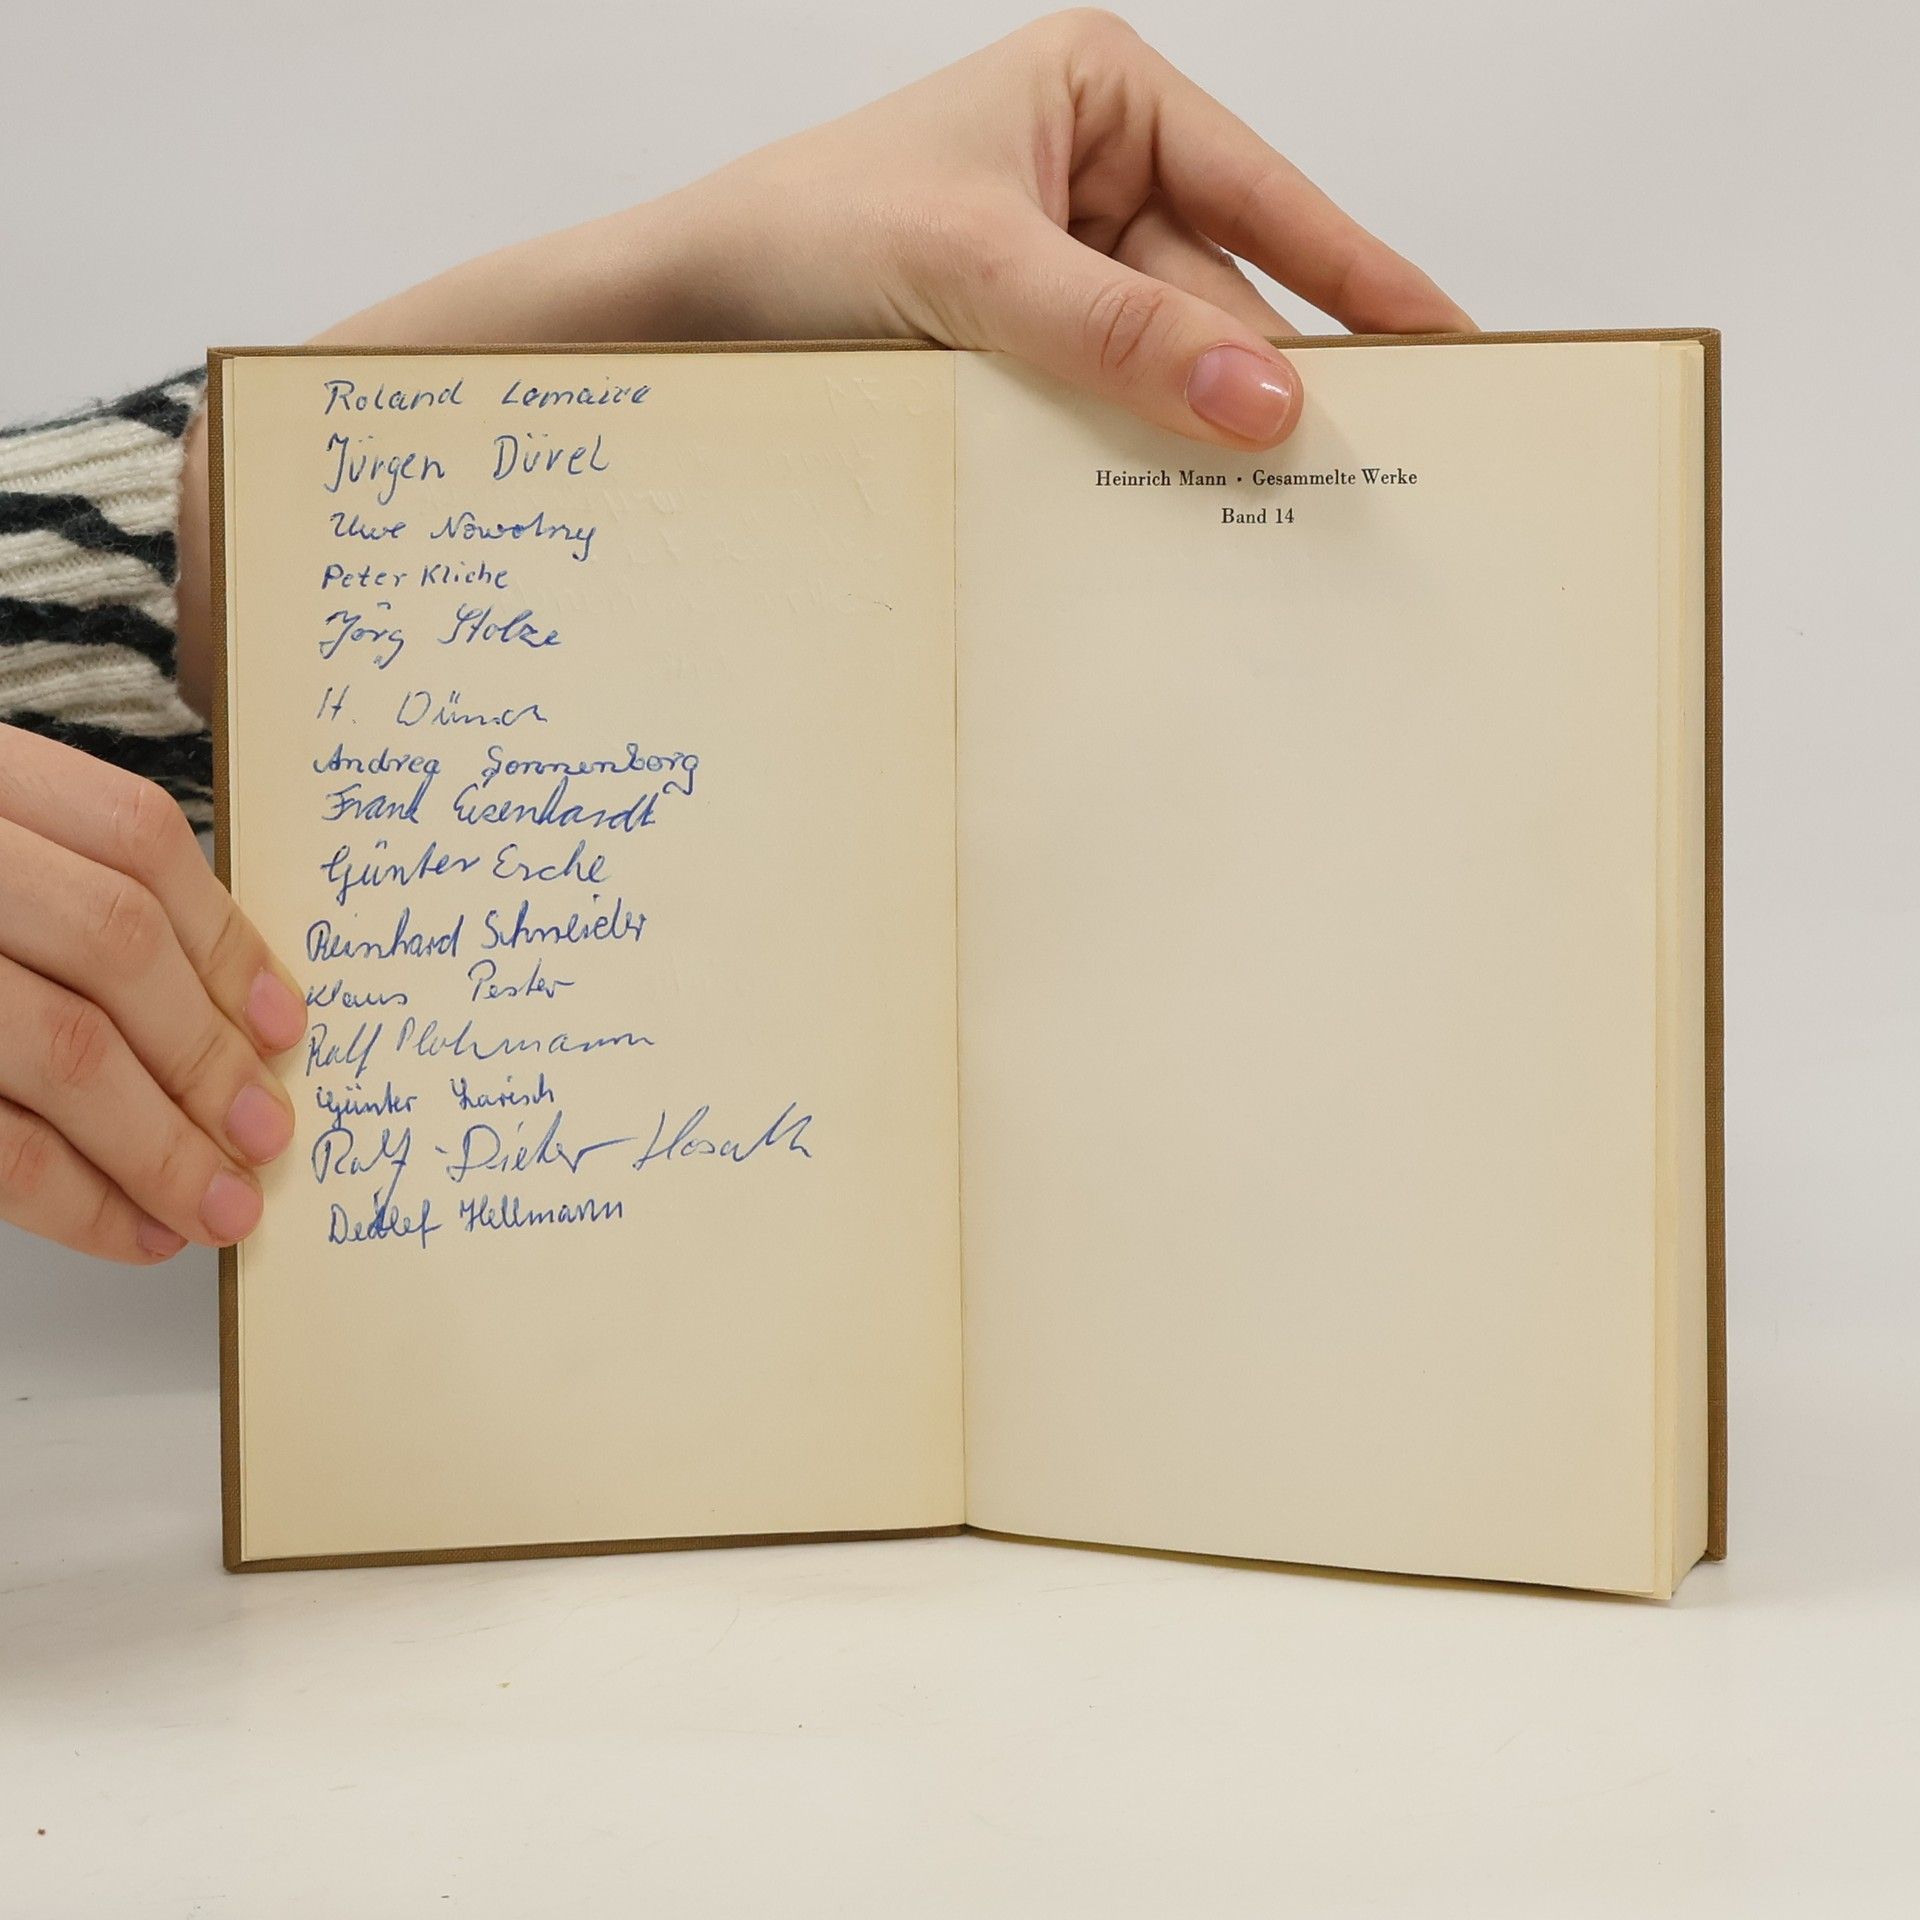 Roland Lemaire
Jürgen Düvel
Uwe Nowotny
Peter Kliche
Jörg Stolze
H. Dünnch
Andrea Sonnenborg
Frank Eisenhardt
Günter Esche
Reinhard Schneider
Klaus Pester
Ralf Plohmann
Günter Larisch
Ralf-Dieter
Detlef Hellmann
Heinrich Mann · Gesammelte Werke
Band 14